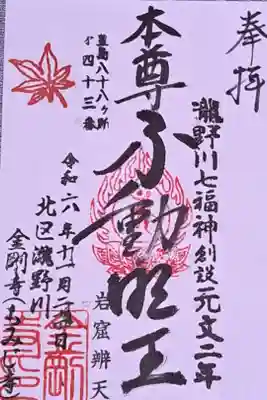 奉拝
瀧野川七福神創設元文二年
岩窟辨天
本尊不動明王
豊島八十八ヶ所
第四十三番
令和六年十一月二十四日
北区瀧野川
金剛寺(もみじ寺)